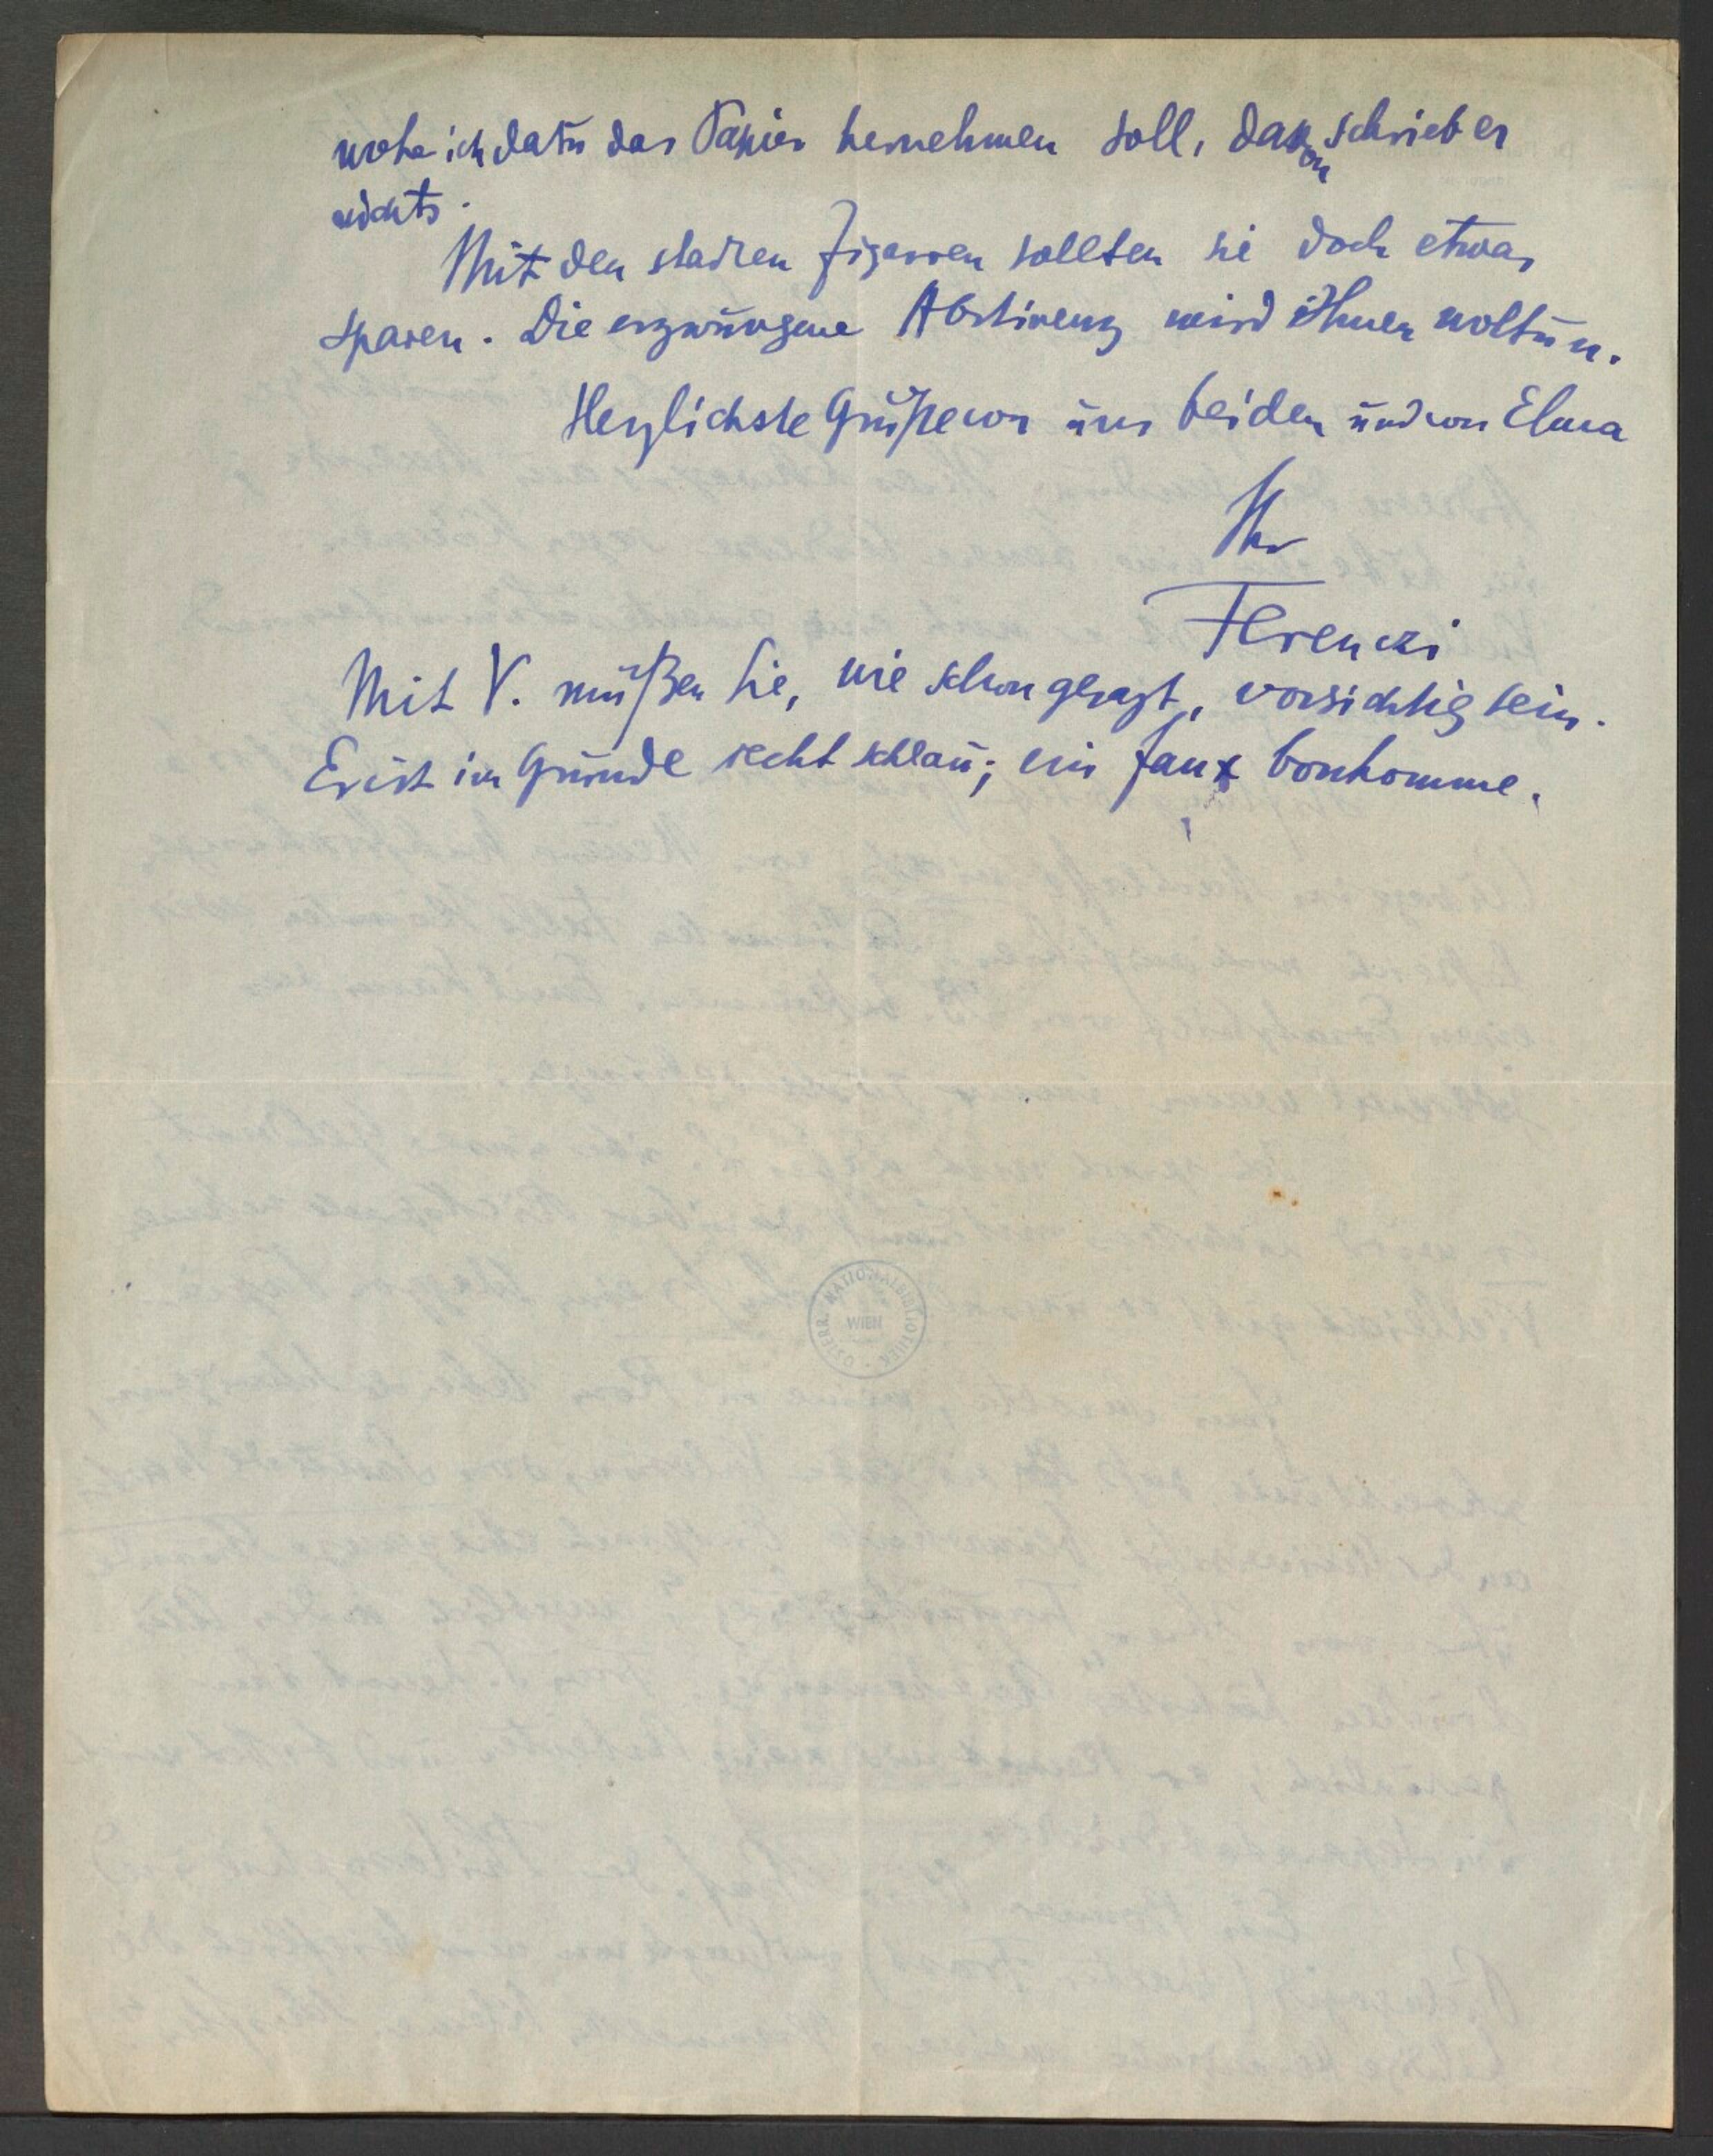 woher ich dazu das Papier hernehmen soll, davon schrieb er
nichts.
Mit den starken Zigarren sollten sie doch etwas
sparen. Die erzwungene Abstinenz wird Ihnen woltun.
Herzlichste Grüße von uns beiden und von Elma
Ihr
Ferenczi
Mit V. müßen Sie, wie schon gesagt, vorsichtig sein.
Er ist im Grunde recht schlau; ein faux bonhomme.
ÖSTERR. NATIONALBIBLIOTHEK
WIEN